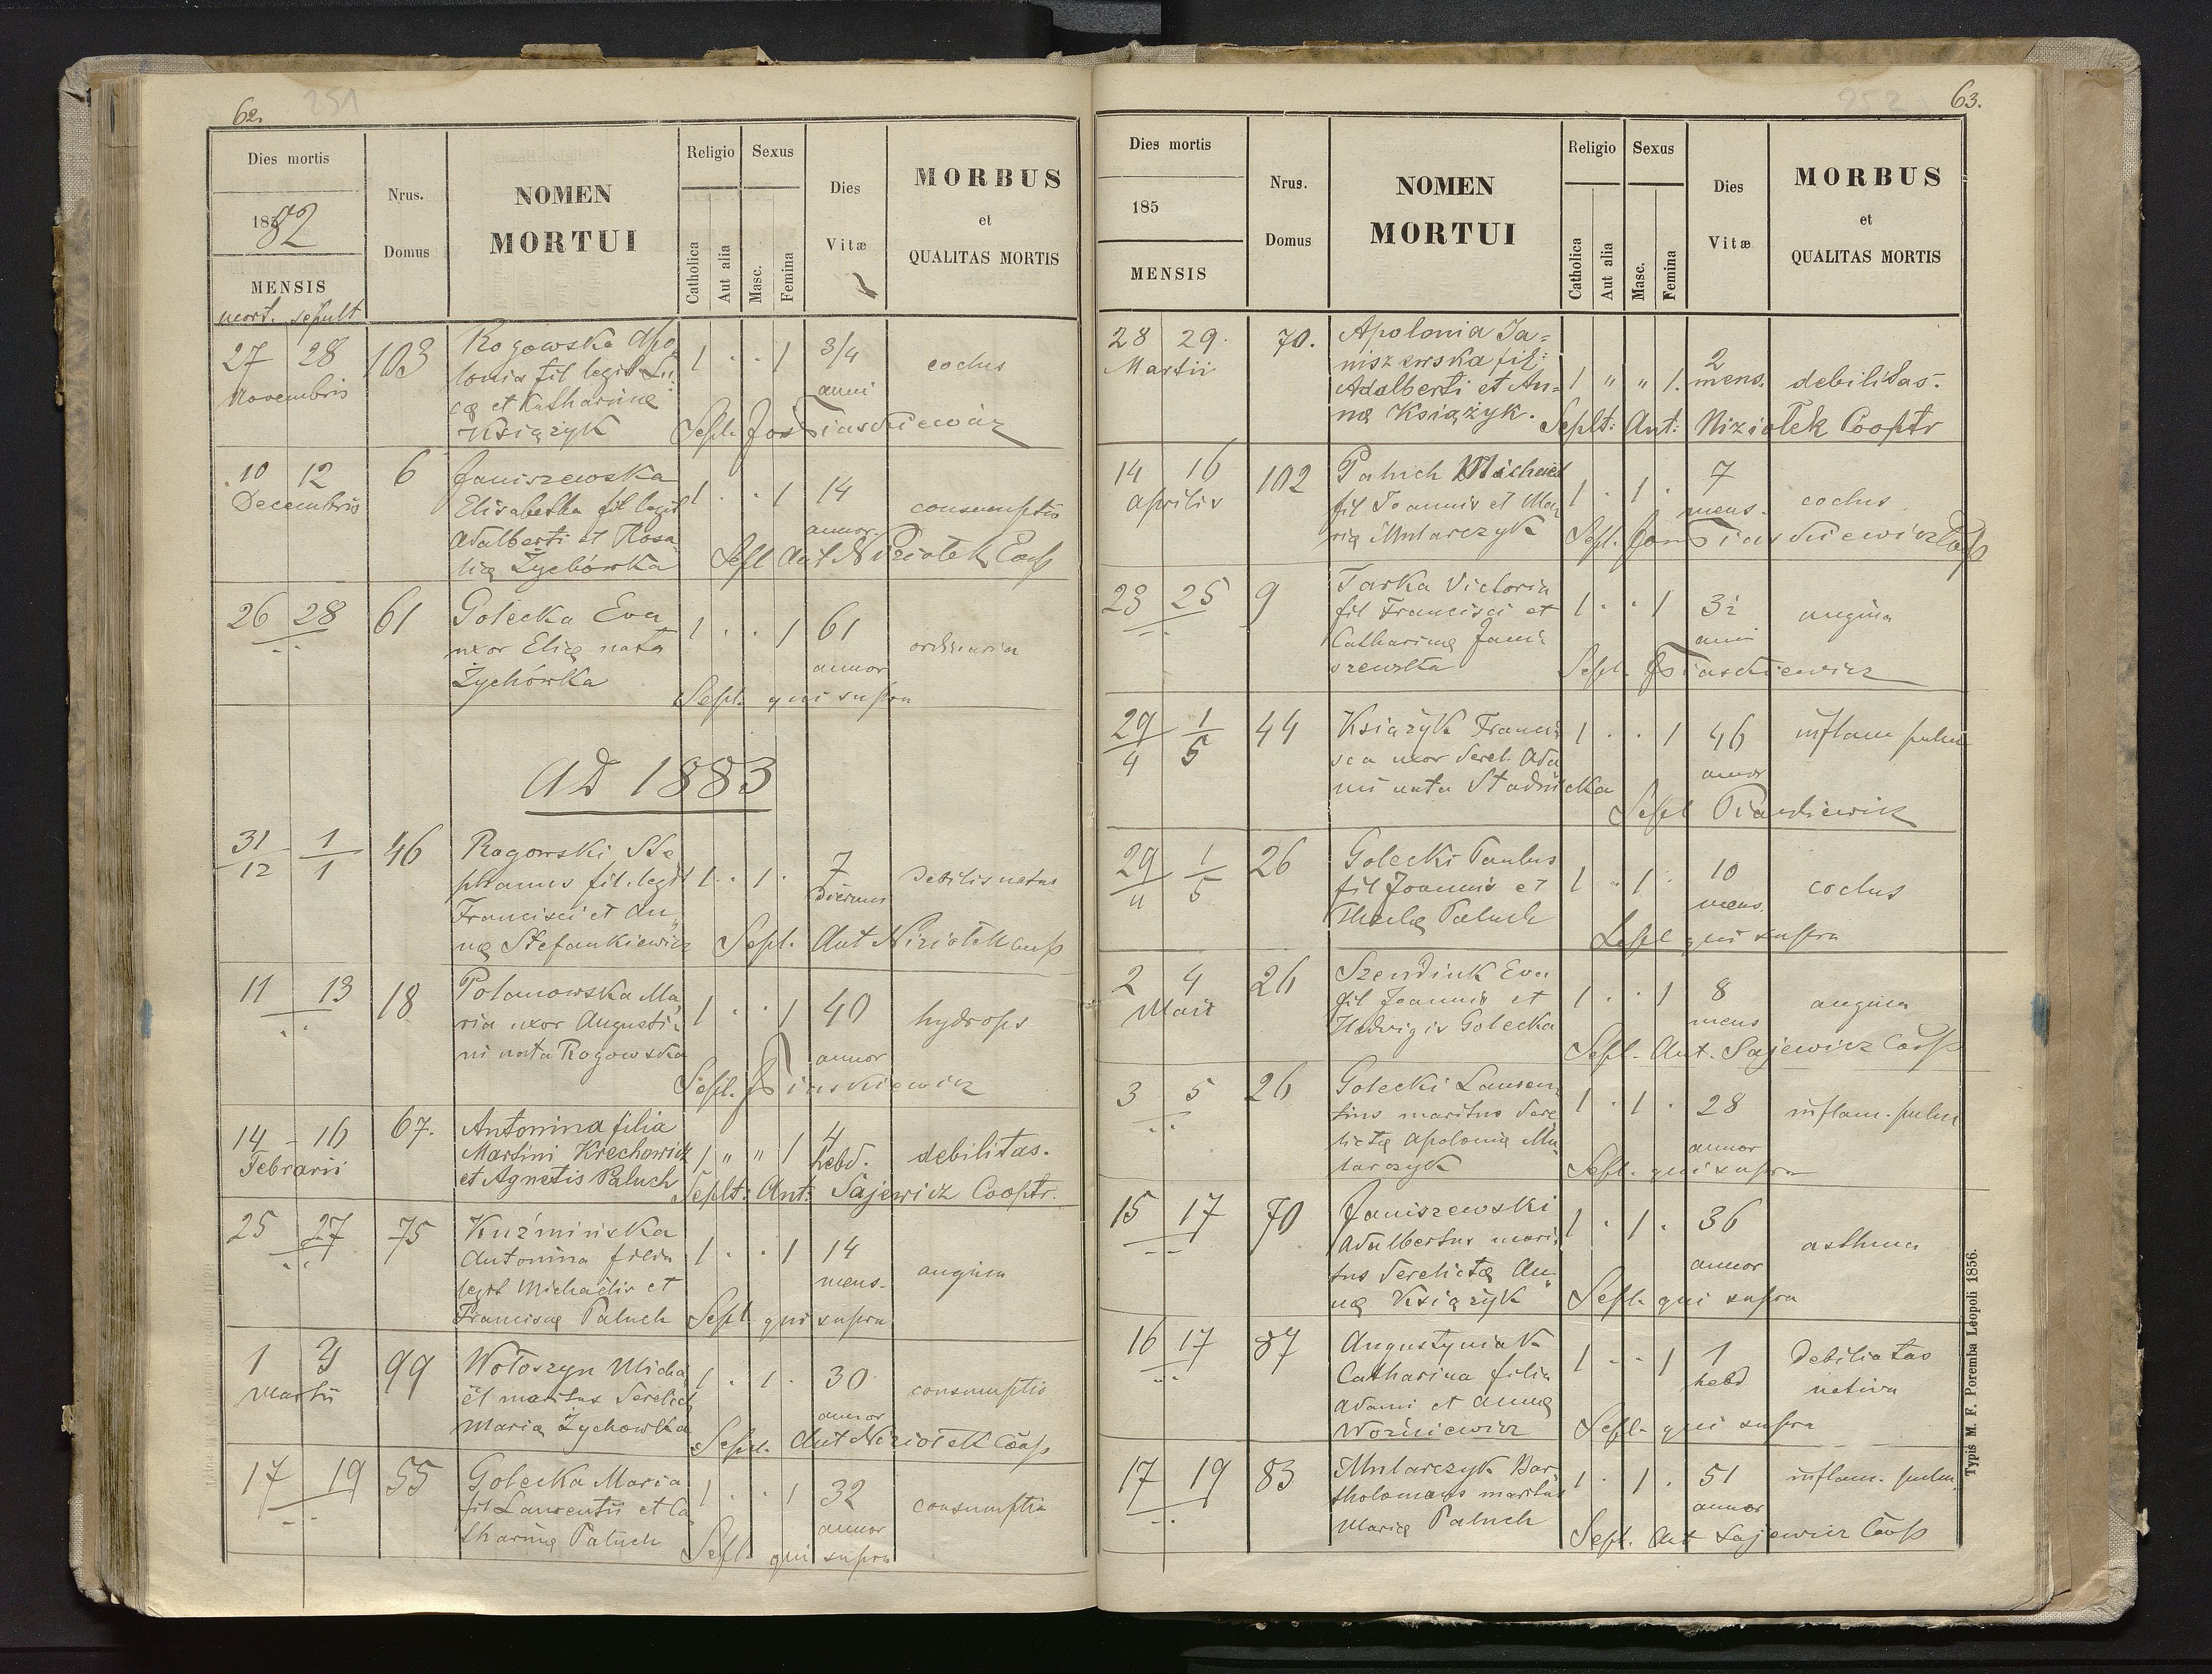 62.
251
Dies mortis
1882
MENSIS
mort. sepult
Nrus.
Domus
NOMEN
MORTUI
Religio
Catholica
Aut alia
Sexus
Masc.
Femina
Dies
Vitæ
MORBUS
et
QUALITAS MORTIS
27 28 103 Rogowska Apo 1 . . 1 3/4 coclus
Novembris lonia fil legit Lu anni
cæ et Katharinæ
Książyk Sepl. Jos Piaskiewicz
10 12 6 Janiszewska 1 . . 1 14 consumptio
Decembris Elisabetha fil legit annor.
Adalberti et Rosa
liæ Żychówka Sepl Ant Niziołek Coop
26 28 61 Golecka Eva 1 . . 1 61 ordinaria
uxor Eliæ nata annor
Żychówka Sepl. qui supra
AD 1883
31/12 1/1 46 Rogowski Ste 1 . 1 . 7 Debilis natus
phanus fil. legit dierum
Francisci et An
næ Stefankiewicz Sepl. Ant Niziołek Coop
11 13 18 Polanowska Ma 1 . . 1 40 hydrops
ria uxor Augusti annor
ni nata Rogowska Sepl. J Piaskiewicz
14 - 16 67. Antonina filia 1 " " 1 4 debilitas.
Febrarii Martini Krechowicz hebd.
et Agnetis Paluch Seplt: Ant: Sajewicz Cooptr.
25 27 75 Kuźmińska 1 . . 1 14 angina
Antonina filia mens.
legit Michaëlis et
Franciscæ Paluch Sepl qui supra
1 3 99 Wołoszyn Micha 1 . 1 . 30 consumptio
Martii ël maritus derelict annor
Mariæ Żychowka Sepl. Ant Niziołek Coop
17 19 55 Golecka Maria 1 . . 1 32 consumptio
fil Laurentii et Ca annor
tharinæ Paluch Sepl. qui supra
63.
252
Dies mortis
185
MENSIS
Nrus.
Domus
NOMEN
MORTUI
Religio
Catholica
Aut alia
Sexus
Masc.
Femina
Dies
Vitæ
MORBUS
et
QUALITAS MORTIS
28 29. 70. Apolonia Ja=
Martii niszewska fil: 2
Adalberti et An= 1 " " 1. mens. debilitas.
næ Książyk. Seplt: Ant: Niziołek Cooptr
14 16 102 Paluch Michael 1 . 1 . 7 coclus
Aprilis fil Joannis et Ma mens.
riæ Mularczyk Sepl. Jos Piaskiewicz Coop
23 25 9 Tarka Victoria 1 . . 1 angina
fil Francisci et
Catharinæ Jani
szewska Sepl. J Piaskiewicz
29/4 1/5 44 Książyk Franci 1 . . 1 46 inflam pulm
sca uxor derel. Ada annor
mi nata Stadnicka
Sepl Piaskiewicz
29/4 1/5 26 Golecki Paulus 1 . 1 . 10 coclus
fil Joannis et mens.
Theclæ Paluch Sepl qui supra
2 4 26 Szendiuk Eva 1 . . 1 8 angina
Maii fil Joannis et mens
Hedvigis Golecka Sepl. Ant. Sajewicz Coop
3 5 26 Golecki Lauren 1 . 1 . 28 inflam. pulm
tius maritus dere annor
lictæ Apoloniæ Mu
larczyk Sepl. qui supra
15 17 70 Janiszewski 1 . 1 . 36 asthma
Adalbertus mari annor
tus derelictæ An
næ Książyk Sepl. qui supra
16 17 87 Augustyniak 1 . . 1 1 Debilitas
Catharina filia hebd nativa
Adami et Annæ
Woźniewicz Sepl. qui supra
17 19 83 Mularczyk Bar 1 . 1 . 51 inflam. pulm
tholomæus maritus annor
Mariæ Paluch Sepl. Ant Sajewicz Coop
Typis M. F. Poremba Leopoli 1856.